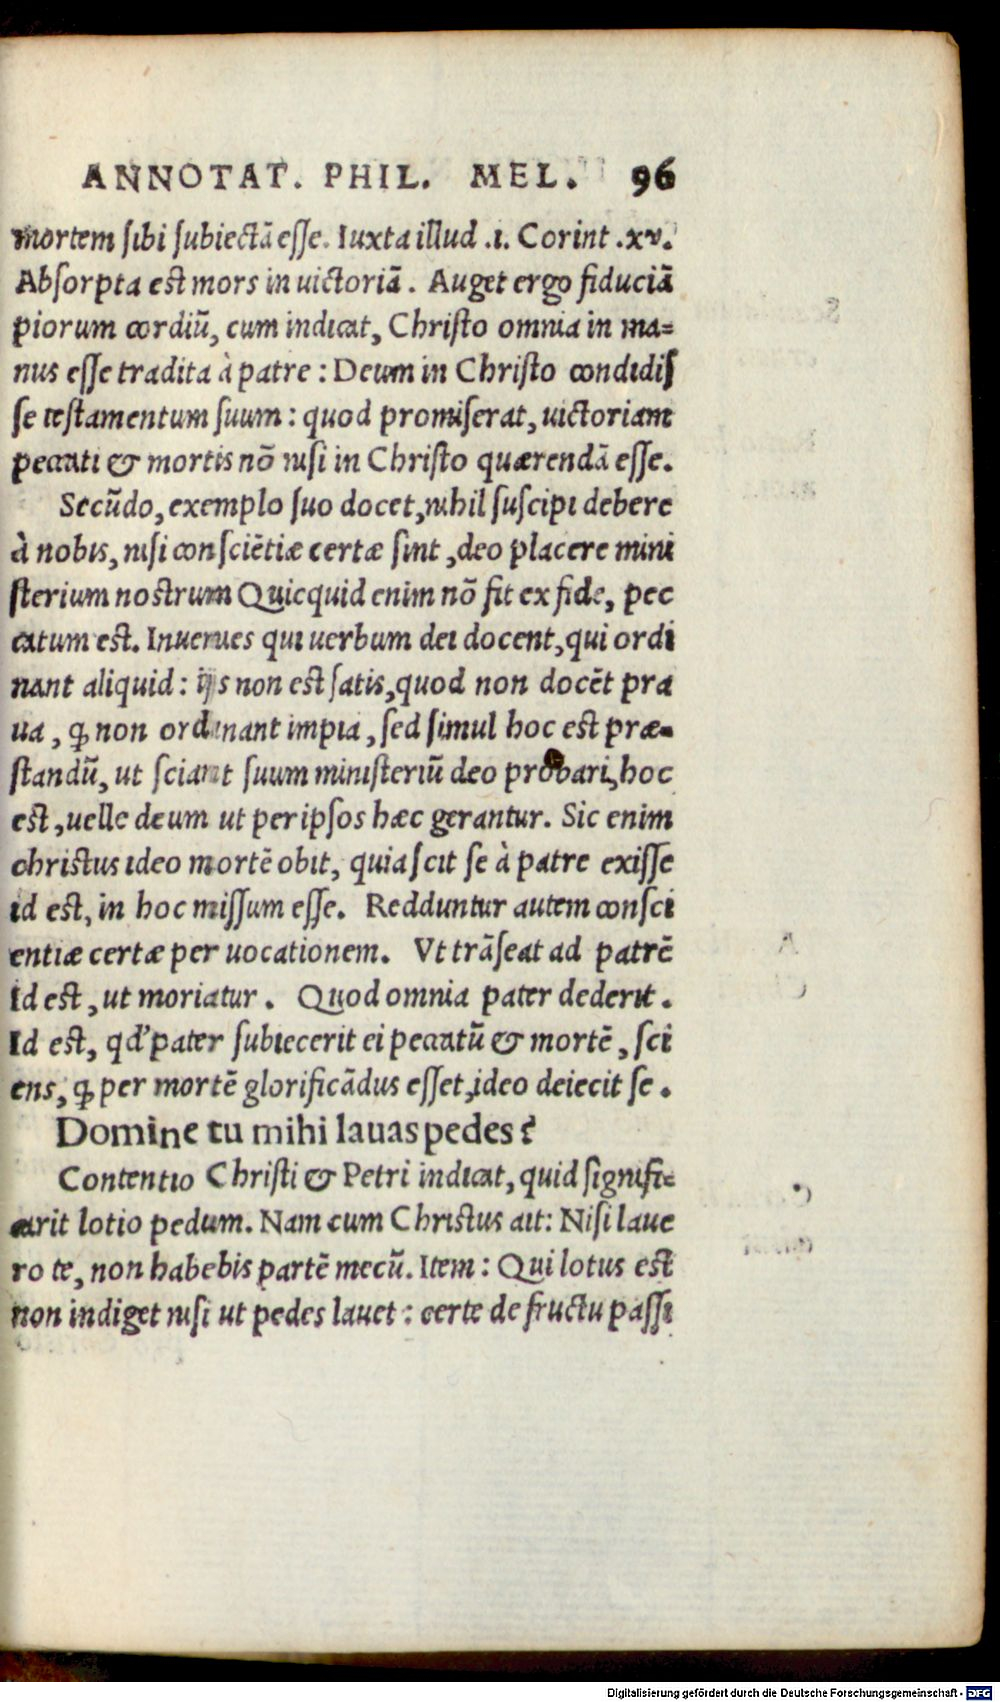 ANNOTAT. PHIL. MEL. 96
mortem sibi subiectā esse. Iuxta illud .1. Corint .xv.
Absorpta est mors in uictoriā. Auget ergo fiduciā
piorum cordiū, cum indicat, Christo omnia in ma=
nus esse tradita à patre : Deum in Christo condidis
se testamentum suum : quod promiserat, uictoriam
peccati & mortis nō nisi in Christo quærendā esse.
Secūdo, exemplo suo docet, nihil suscipi debere
à nobis, nisi consciētiæ certæ sint, deo placere mini
sterium nostrum Quicquid enim nō fit ex fide, pec
catum est. Inuenies qui uerbum dei docent, qui ordi
nant aliquid : ijs non est satis, quod non docēt pra
ua, ꝙ non ordinant impia, sed simul hoc est præ-
standū, ut sciant suum ministeriū deo probari, hoc
est, uelle deum ut per ipsos hæc gerantur. Sic enim
christus ideo mortē obit, quia scit se à patre exisse
id est, in hoc missum esse. Redduntur autem consci
entiæ certæ per uocationem. Vt trāseat ad patrē
Id est, ut moriatur. Quod omnia pater dederit.
Id est, qd' pater subiecerit ei peccatū & mortē, sci
ens, ꝙ per mortē glorificādus esset, ideo deiecit se.
Domine tu mihi lauas pedes?
Contentio Christi & Petri indicat, quid signifi=
carit lotio pedum. Nam cum Christus ait: Nisi laue
ro te, non habebis partē mecū. Item : Qui lotus est
non indiget nisi ut pedes lauet : certe de fructu passi
Digitalisierung gefördert durch die Deutsche Forschungsgemeinschaft - DFG